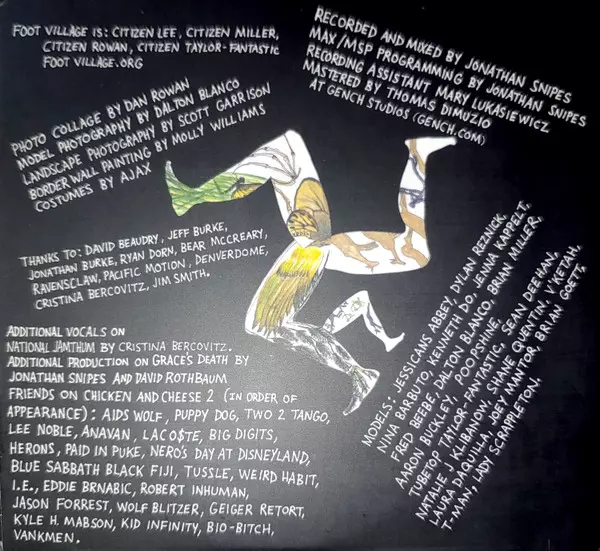 FOOT VILLAGE IS: CITIZEN LEE, CITIZEN MILLER,
CITIZEN ROWAN, CITIZEN TAYLOR-FANTASTIC
FOOT VILLAGE.ORG
RECORDED AND MIXED BY JONATHAN SNIPES
MAX/MSP PROGRAMMING BY JONATHAN SNIPES
RECORDING ASSISTANT MARY LUKASIEWICZ
MASTERED BY THOMAS DIMUZIO
AT GENCH STUDIOS (GENCH.COM)
PHOTO COLLAGE BY DAN ROWAN
MODEL PHOTOGRAPHY BY DALTON BLANCO
LANDSCAPE PHOTOGRAPHY BY SCOTT GARRISON
BORDER WALL PAINTING BY MOLLY WILLIAMS
COSTUMES BY AJAX
THANKS TO: DAVID BEAUDRY, JEFF BURKE,
JONATHAN BURKE, RYAN DORN, BEAR MCCREARY,
RAVENSCLAW, PACIFIC MOTION, DENVERDOME,
CRISTINA BERCOVITZ, JIM SMITH.
ADDITIONAL VOCALS ON
NATIONAL JAMTHUM BY CRISTINA BERCOVITZ.
ADDITIONAL PRODUCTION ON GRACE'S DEATH BY
JONATHAN SNIPES AND DAVID ROTHBAUM
FRIENDS ON CHICKEN AND CHEESE 2 (IN ORDER OF
APPEARANCE): AIDS WOLF, PUPPY DOG, TWO 2 TANGO,
LEE NOBLE, ANAVAN, LACO$TE, BIG DIGITS,
HERONS, PAID IN PUKE, NERO'S DAY AT DISNEYLAND,
BLUE SABBATH BLACK FIJI, TUSSLE, WEIRD HABIT,
I.E., EDDIE BRNABIC, ROBERT INHUMAN,
JASON FORREST, WOLF BLITZER, GEIGER RETORT,
KYLE H. MABSON, KID INFINITY, BIO-BITCH,
VANKMEN.
MODELS: JESSICANS ABBEY, DYLAN REZNICK,
NINA BARBUTO, KENNETH DO, JENNA KAPPELT,
FRED BEEBE, DALTON BLANCO, BRIAN MILLER,
AARON BUCKLEY, POOPSHINE,
TUBETOP TAYLOR-FANTASTIC, SEAN DEEHAN,
NATALIE J KLIBANOW, SHANE QUENTIN, V'KETAH,
LAURA DAQUILLA, JOEY MANTOR, BRIAN GOETT,
T-MAN, LADY SCRAPPLETON.